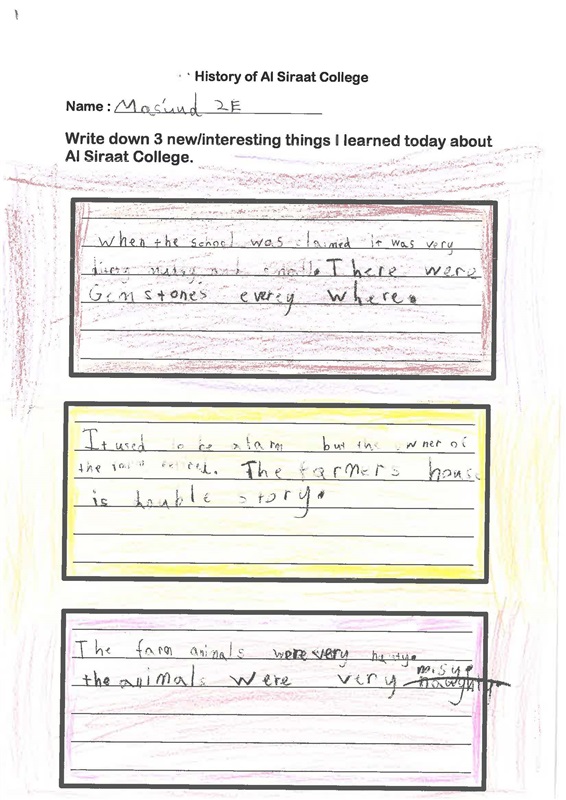 History of Al Siraat College
Name : Masuud 2E
Write down 3 new/interesting things I learned today about
Al Siraat College.
When the school was claimed it was very
small. There were
Gemstones everey where.
It used to be a farm but the owner of
the farm The farmers house
is houble story.
The farm animals were very
the animals were very misye
naughty